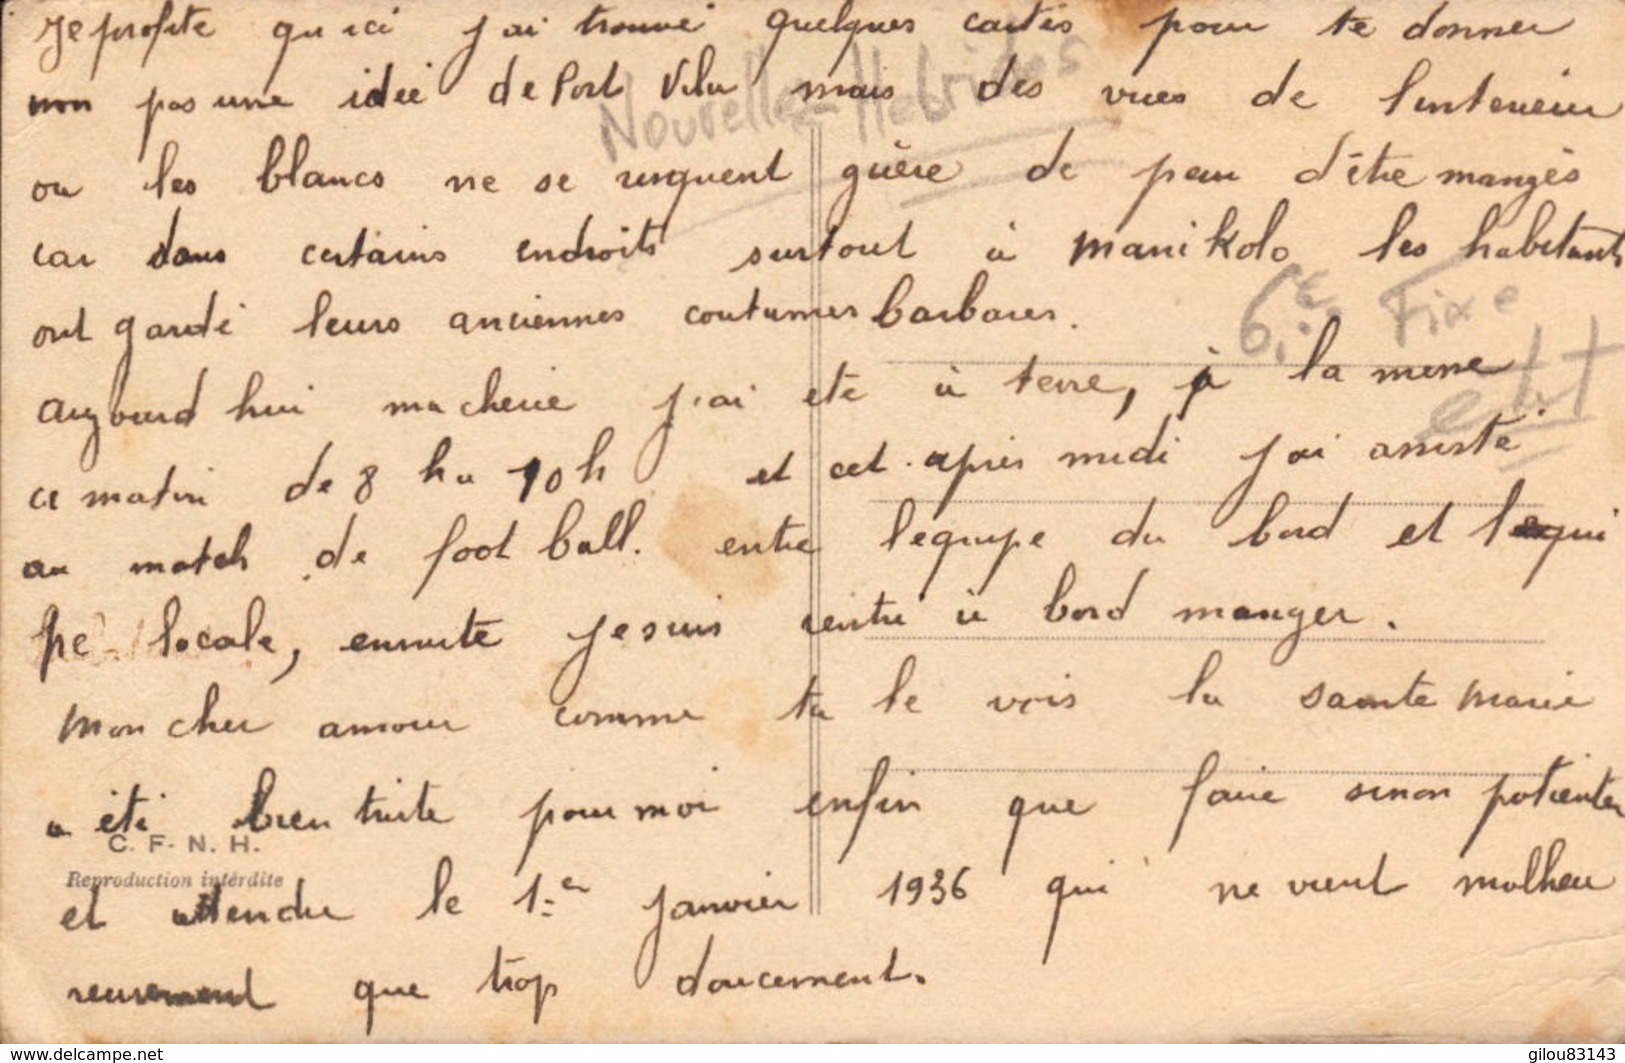 Je profite qu ici j'ai trouvé quelques cartes pour te donner
non pas une idée de Port Vila mais des vues de l'interieur
Nouvelles-Hebrides
ou les blancs ne se risquent guère de peur d'être mangés
car dans certains endroits surtout à Manikolo les habitants
ont gardé leurs anciennes coutumes barbares.
6. Fixe
aujourd hui ma cherie j'ai eté à terre, à la messe
ce matin de 8 h a 10 h et cet après midi j'ai assisté
au match de foot ball. entre l'equipe du bord et l'equi
pe locale, ensuite je suis rentré à bord manger.
Mon cher amour comme tu le vois la sainte Marie
a été bien triste pour moi enfin que faire sinon patienter
C. F. N. H.
Reproduction intérdite
et attendre le 1er janvier 1936 qui ne vient malheu
reusement que trop doucement.
www.delcampe.net
gilou83143